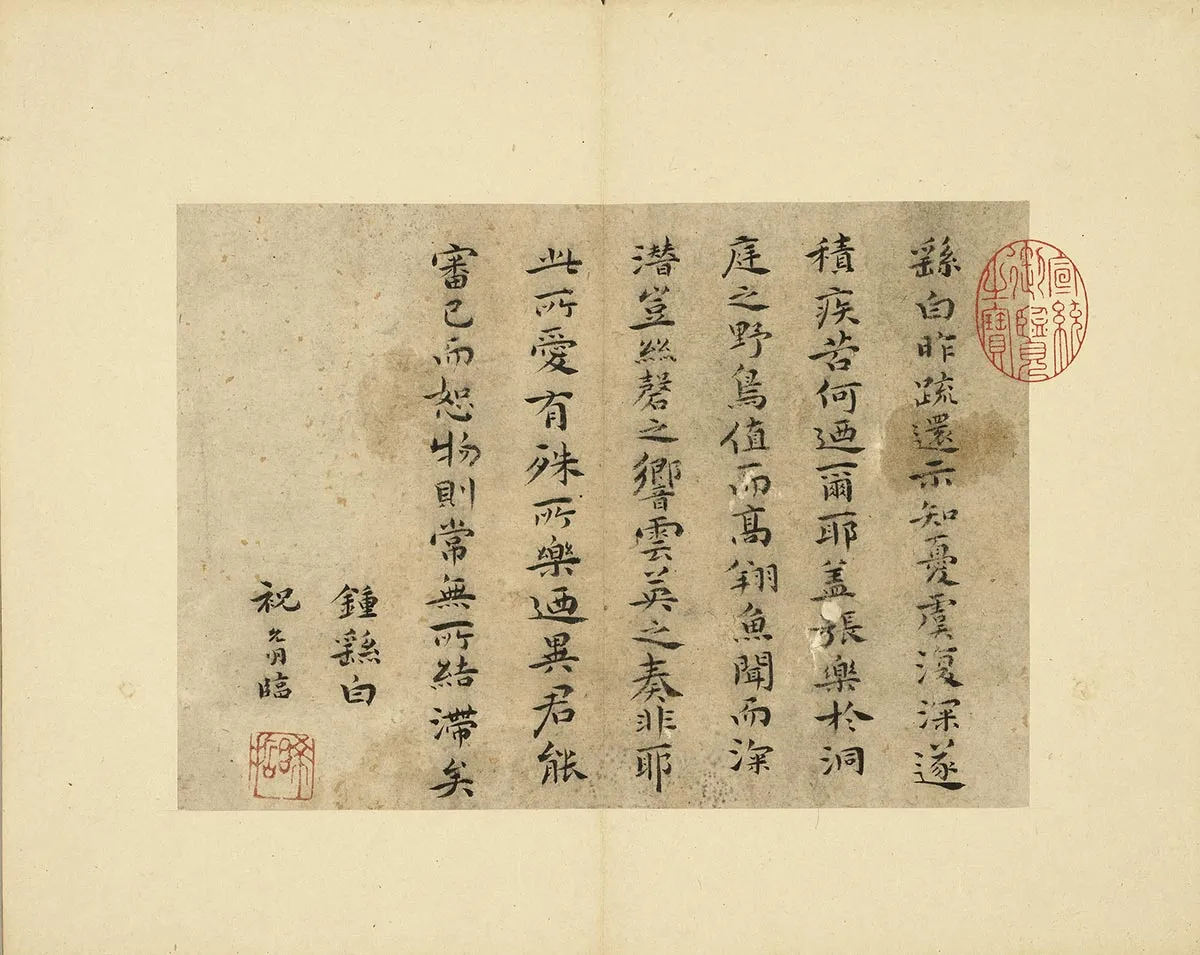 宣統
御覽
之寶
繇白昨疏還示知憂虞復深遂
積疾苦何迺爾耶蓋張樂於洞
庭之野鳥值而高翔魚聞而深
潛豈絲磬之響雲英之奏非耶
此所愛有殊所樂迺異君能
審己而恕物則常無所結滯矣
鍾繇白
祝允明臨
晞哲